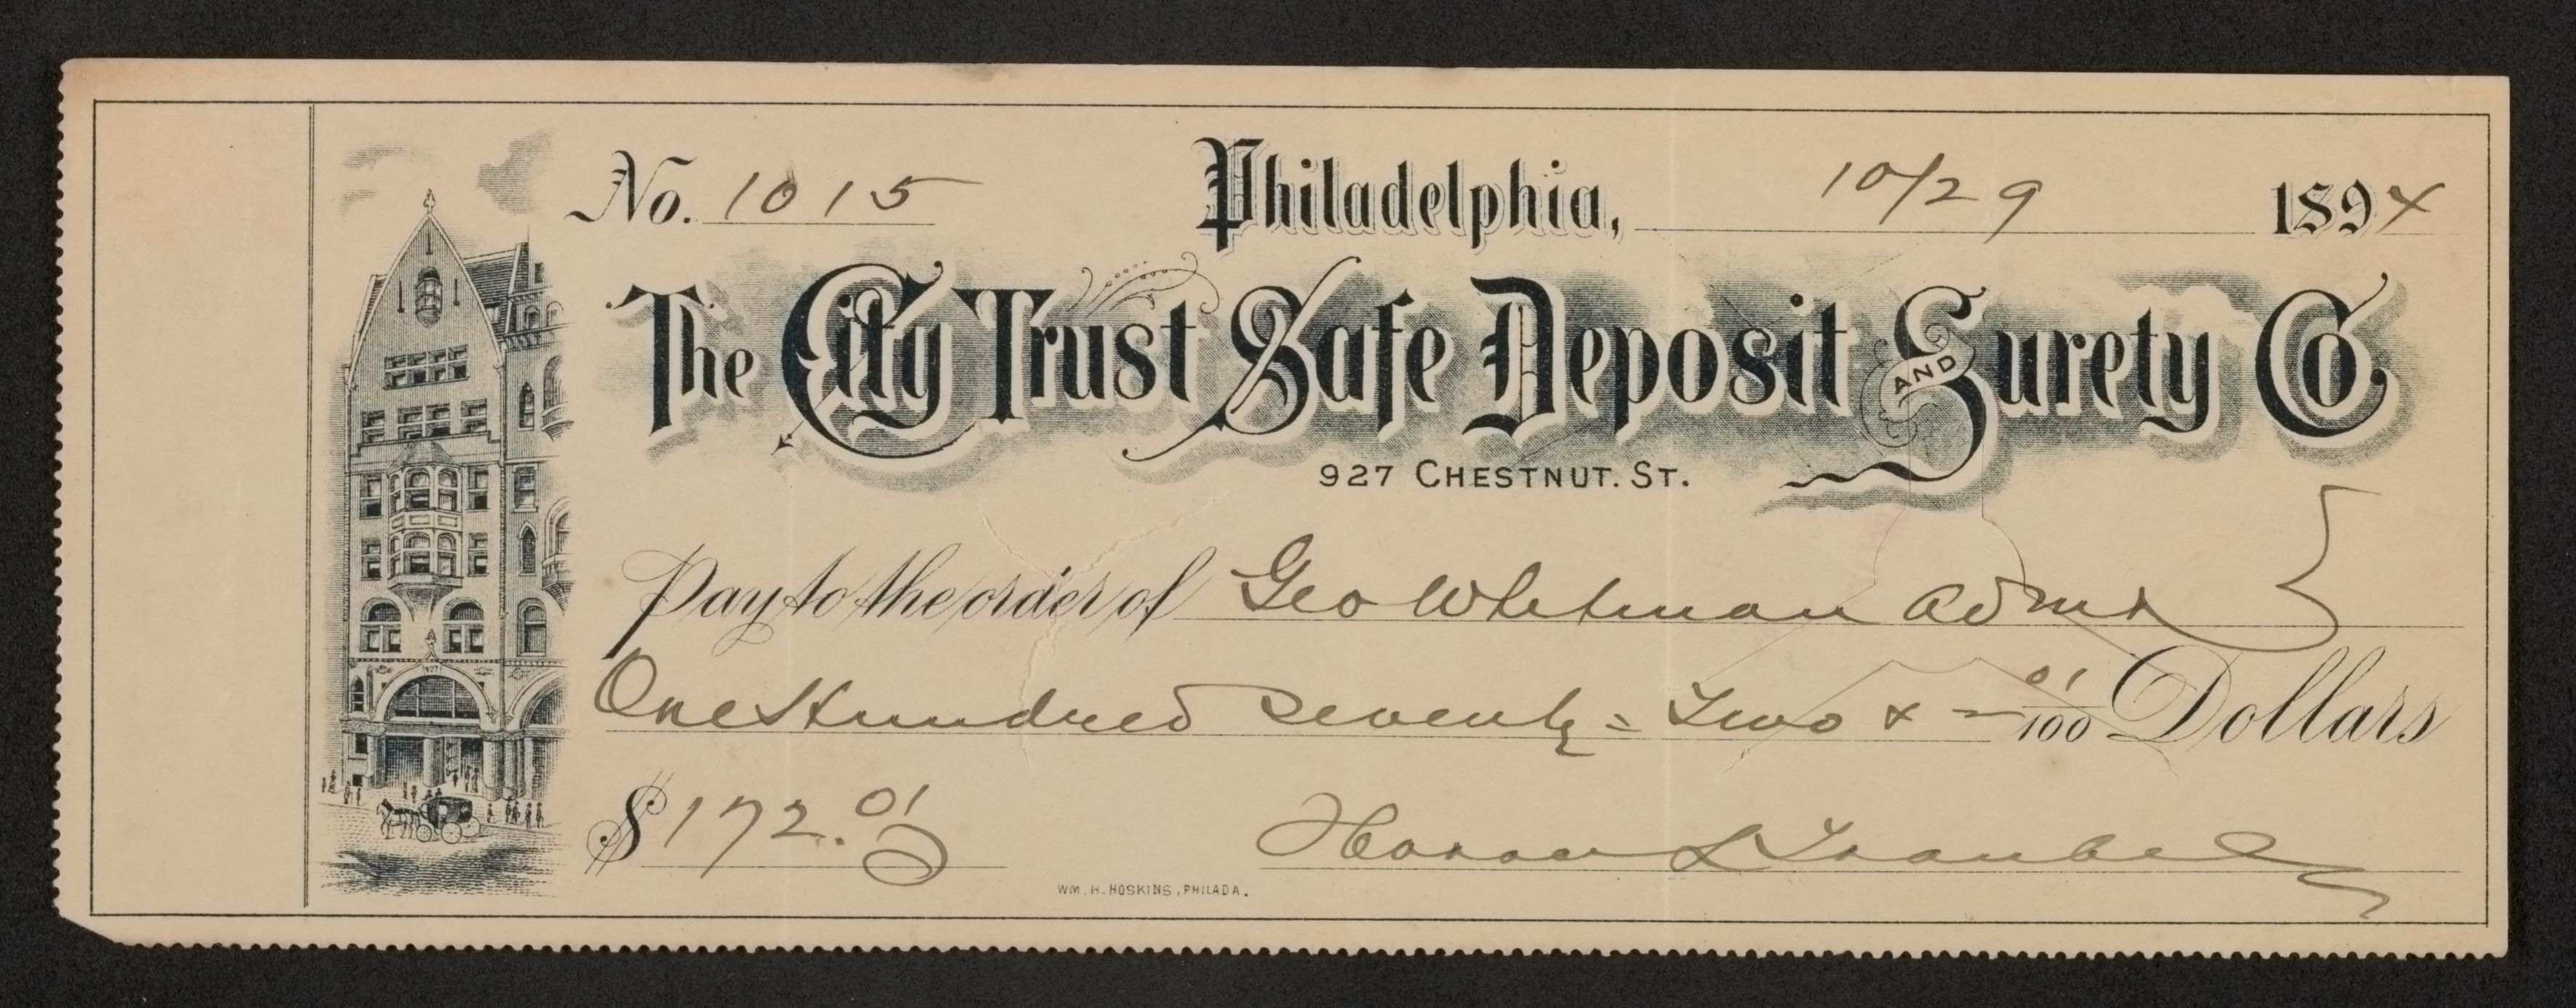 No. 1015 Philadelphia, 10/29 1894
The City Trust Safe Deposit AND Surety Co.
927 CHESTNUT. ST.
Pay to the order of Geo Whitman Admr
One Hundred Seventy = Two & 01/100 Dollars
$172.01 Horace L Traubel
WM. H. HOSKINS, PHILADA.